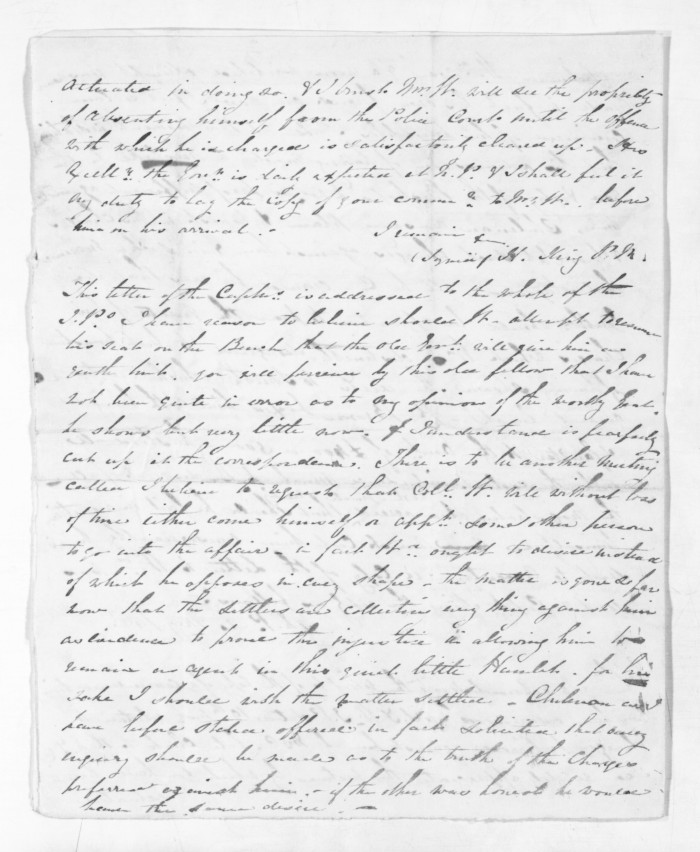 actuated in doing so. & I trust Mr. H. will see the propriety
of absenting himself from the Police Court until the offence
with which he is charged is satisfactorily cleared up. His
Excelly. the Govr. is daily expected at N.P. & I shall feel it
my duty to lay the Copy of your commn. to Mr. H. before
him on his arrival.
I remain &
(Signed) H. King P.M.
This letter of the Captns. is addressed to the whole of the
J.Ps. I have reason to believe should H. attempt to resume
his seat on the Bench that the old Gent. will give him an
you will perceive by this old fellow that I have
not been quite in error as to my opinion of the worthy Gent.
he shows but very little now. & I understand is fearfully
cut up at the correspondence. There is to be another Meeting
called I believe to request that Coll. W. will without loss
of time either come himself or appt. some other person
to go into the affair. in fact H. ought to desire instead
of which he opposes in every shape. the matter is gone so far
now that the settlers are collecting every thing against him
as evidence to prove the injustice in allowing him to
remain as agent in this quiet little Hamlet. for his
sake I should wish the matter settled. Chilman as I
have before stated offered in fact solicited that every
inquiry should be made as to the truth of the Charges
preferred against him. if the other was honest he would
have the same desire.